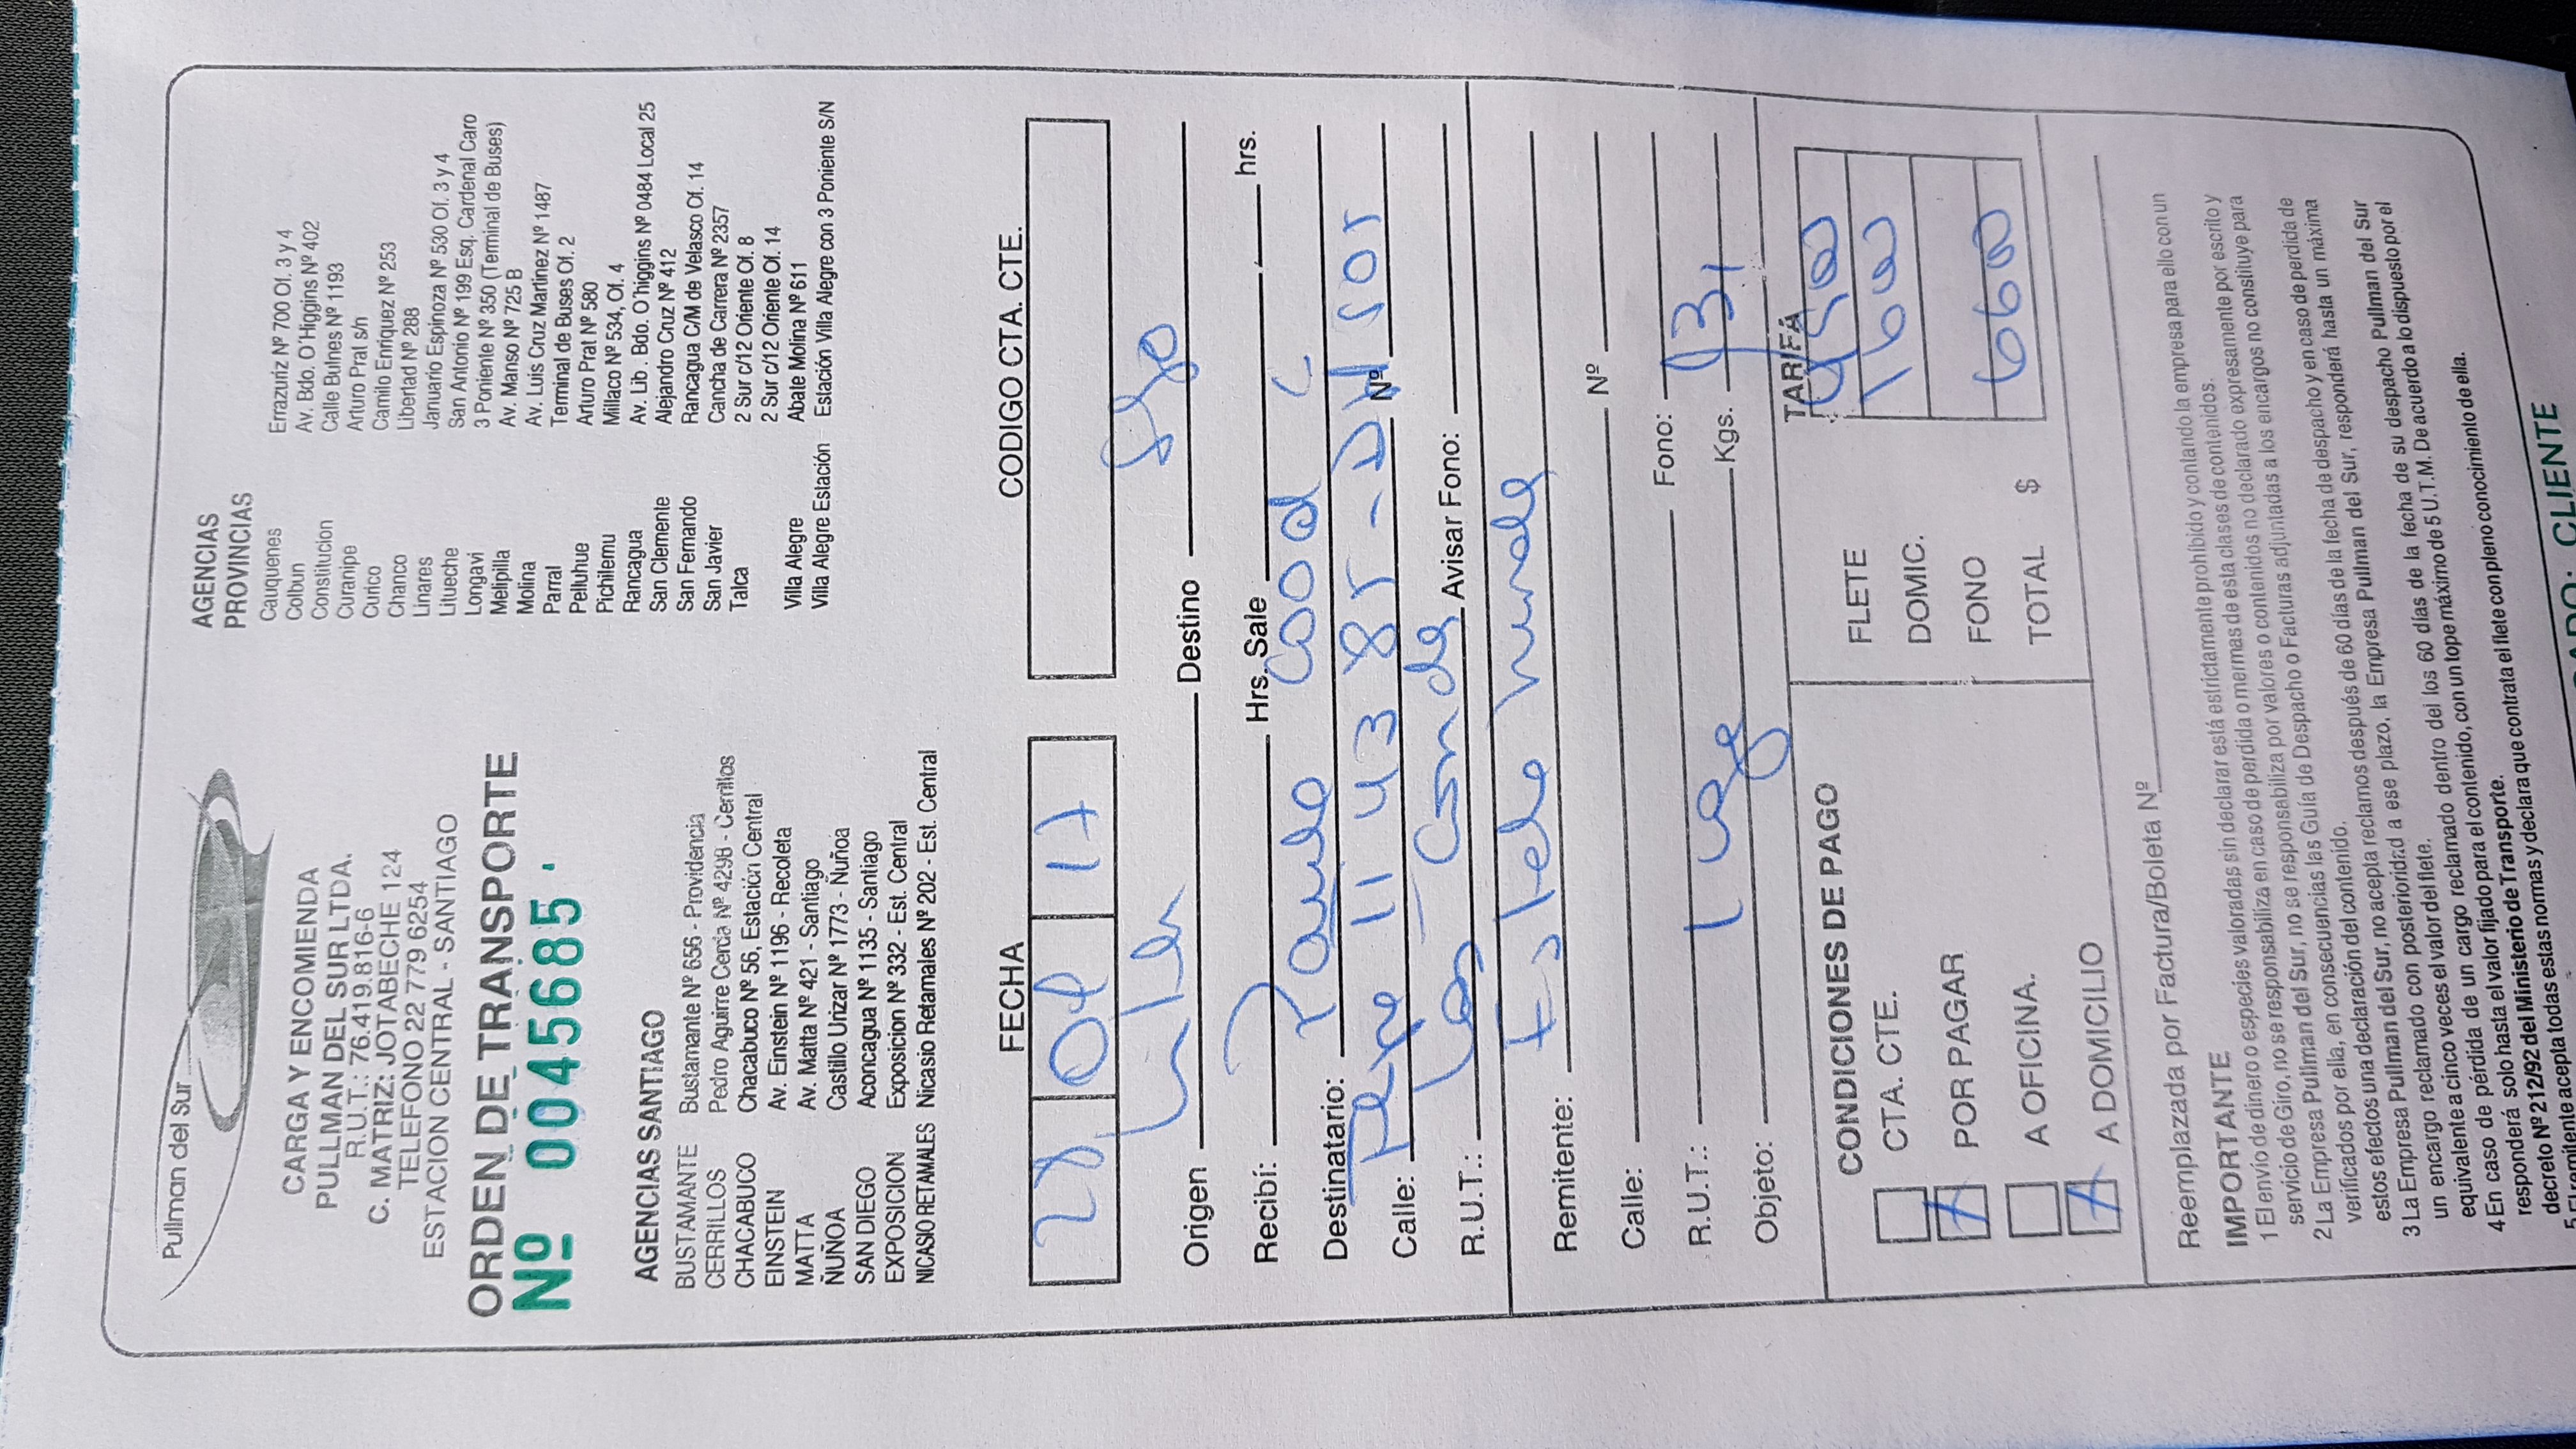 Pullman del Sur
CARGA Y ENCOMIENDA
PULLMAN DEL SUR LTDA.
R.U.T.: 76.419.816-6
C. MATRIZ: JOTABECHE 124
TELEFONO 22 779 6254
ESTACION CENTRAL - SANTIAGO
ORDEN DE TRANSPORTE
Nº 0045685
AGENCIAS
PROVINCIAS
Cauquenes Errazuriz Nº 700 Of. 3 y 4
Colbun Av. Bdo. O'Higgins Nº 402
Constitucion Calle Bulnes Nº 1193
Curanipe Arturo Prat s/n
Curico Camilo Enriquez Nº 253
Chanco Libertad Nº 288
Linares Januario Espinoza Nº 530 Of. 3 y 4
Litueche San Antonio Nº 199 Esq. Cardenal Caro
Longavi 3 Poniente Nº 350 (Terminal de Buses)
Melipilla Av. Manso Nº 725 B
Molina Av. Luis Cruz Martinez Nº 1487
Parral Terminal de Buses Of. 2
Pelluhue Arturo Prat Nº 580
Pichilemu Millaco Nº 534, Of. 4
Rancagua Av. Lib. Bdo. O'higgins Nº 0484 Local 25
San Clemente Alejandro Cruz Nº 412
San Fernando Rancagua C/M de Velasco Of. 14
San Javier Cancha de Carrera Nº 2357
Talca 2 Sur c/12 Oriente Of. 8
2 Sur c/12 Oriente Of. 14
Villa Alegre Abate Molina Nº 611
Villa Alegre Estación Estación Villa Alegre con 3 Poniente S/N
AGENCIAS SANTIAGO
BUSTAMANTE Bustamante Nº 656 - Providencia
CERRILLOS Pedro Aguirre Cerda Nº 4298 - Cerrillos
CHACABUCO Chacabuco Nº 56, Estación Central
EINSTEIN Av. Einstein Nº 1196 - Recoleta
MATTA Av. Matta Nº 421 - Santiago
ÑUÑOA Castillo Urizar Nº 1773 - Ñuñoa
SAN DIEGO Aconcagua Nº 1135 - Santiago
EXPOSICION Exposicion Nº 332 - Est. Central
NICASIO RETAMALES Nicasio Retamales Nº 202 - Est. Central
FECHA CODIGO CTA. CTE.
17
Origen Destino Stgo
Recibí: Hrs. Sale hrs.
Destinatario: Paula
Calle: 11438 Nº
Las Condes
R.U.T.: Avisar Fono:
Remitente:
Calle: Nº
R.U.T.: Fono:
Objeto: Kgs.
CONDICIONES DE PAGO
CTA. CTE.
POR PAGAR
A OFICINA.
A DOMICILIO
TARIFA
FLETE
DOMIC. 1600
FONO
TOTAL $ 6600
Reemplazada por Factura/Boleta Nº
IMPORTANTE
1 El envío de dinero o especies valoradas sin declarar está estrictamente prohibido y contando la empresa para ello con un
servicio de Giro, no se responsabiliza en caso de perdida o mermas de esta clases de contenidos.
2 La Empresa Pullman del Sur, no se responsabiliza por valores o contenidos no declarado expresamente por escrito y
verificados por ella, en consecuencias las Guía de Despacho o Facturas adjuntadas a los encargos no constituye para
estos efectos una declaración del contenido.
3 La Empresa Pullman del Sur, no acepta reclamos después de 60 días de la fecha de despacho y en caso de perdida de
un encargo reclamado con posterioridad a ese plazo, la Empresa Pullman del Sur, responderá hasta un máxima
equivalente a cinco veces el valor del flete.
4 En caso de pérdida de un cargo reclamado dentro del los 60 días de la fecha de su despacho Pullman del Sur
responderá solo hasta el valor fijado para el contenido, con un tope máximo de 5 U.T.M. De acuerdo a lo dispuesto por el
decreto Nº 212/92 del Ministerio de Transporte.
5 El remitente acepta todas estas normas y declara que contrata el flete con pleno conocimiento de ella.
CLIENTE